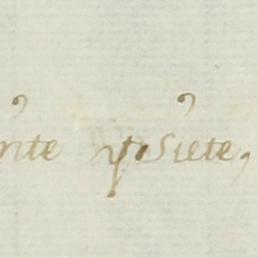 nte y Siete,